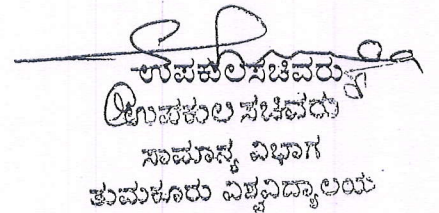 ಉಪಕುಲಸಚಿವರು
ಉಪಕುಲಸಚಿವರು
ಸಾಮಾನ್ಯ ವಿಭಾಗ
ತುಮಕೂರು ವಿಶ್ವವಿದ್ಯಾಲಯ